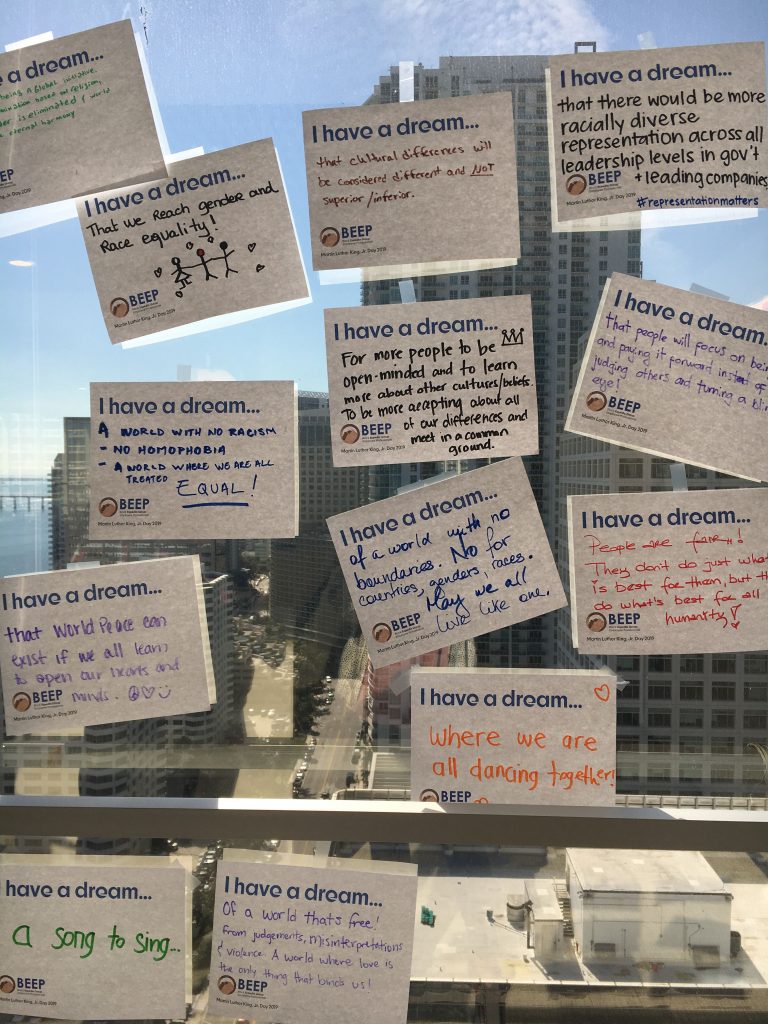 e a dream...
being a Global initiative.
based on religion,
is eliminated & world
eternal harmony
BEEP
I have a dream...
That we Reach gender and
Race equality!
BEEP
Martin Luther King, Jr. Day 2019
I have a dream...
that cultural differences will
be considered different and NOT
superior/inferior.
BEEP
Martin Luther King, Jr. Day 2019
I have a dream...
that there would be more
racially diverse
representation across all
leadership levels in gov't
+ leading companies
BEEP
#representationmatters
Martin Luther King, Jr. Day 2019
I have a dream...
For more people to be
open-minded and to learn
more about other cultures/beliefs.
To be more accepting about all
of our differences and
meet in a common
ground.
BEEP
Martin Luther King, Jr. Day 2019
I have a dream.
that people will focus on bein
and paying it forward instead of
judging others and turning a blin
eye!
BEEP
Martin Luther King, Jr. Day 2019
I have a dream...
A WORLD WITH NO RACISM
- NO HOMOPHOBIA
- A WORLD WHERE WE ARE ALL
TREATED EQUAL!
BEEP
Martin Luther King, Jr. Day 2019
I have a dream...
of a world with no
boundaries. No for
countries, genders, races.
May we all
live like one.
BEEP
Martin Luther King, Jr. Day 2019
I have a dream...
People are fair!
They don't do just what
is best for them, but th
do what's best for all
humanity!
BEEP
Martin Luther King, Jr. Day 2019
I have a dream...
that World Peace can
exist if we all learn
to open our hearts and
minds.
BEEP
Martin Luther King, Jr. Day 2019
I have a dream...
Where we are
all dancing together!
BEEP
have a dream...
a song to sing...
BEEP
Martin Luther King, Jr. Day 2019
I have a dream...
Of a world thats free!
from judgements, misinterpretations
& violence. A world where love is
the only thing that binds us!
BEEP
Martin Luther King, Jr. Day 2019